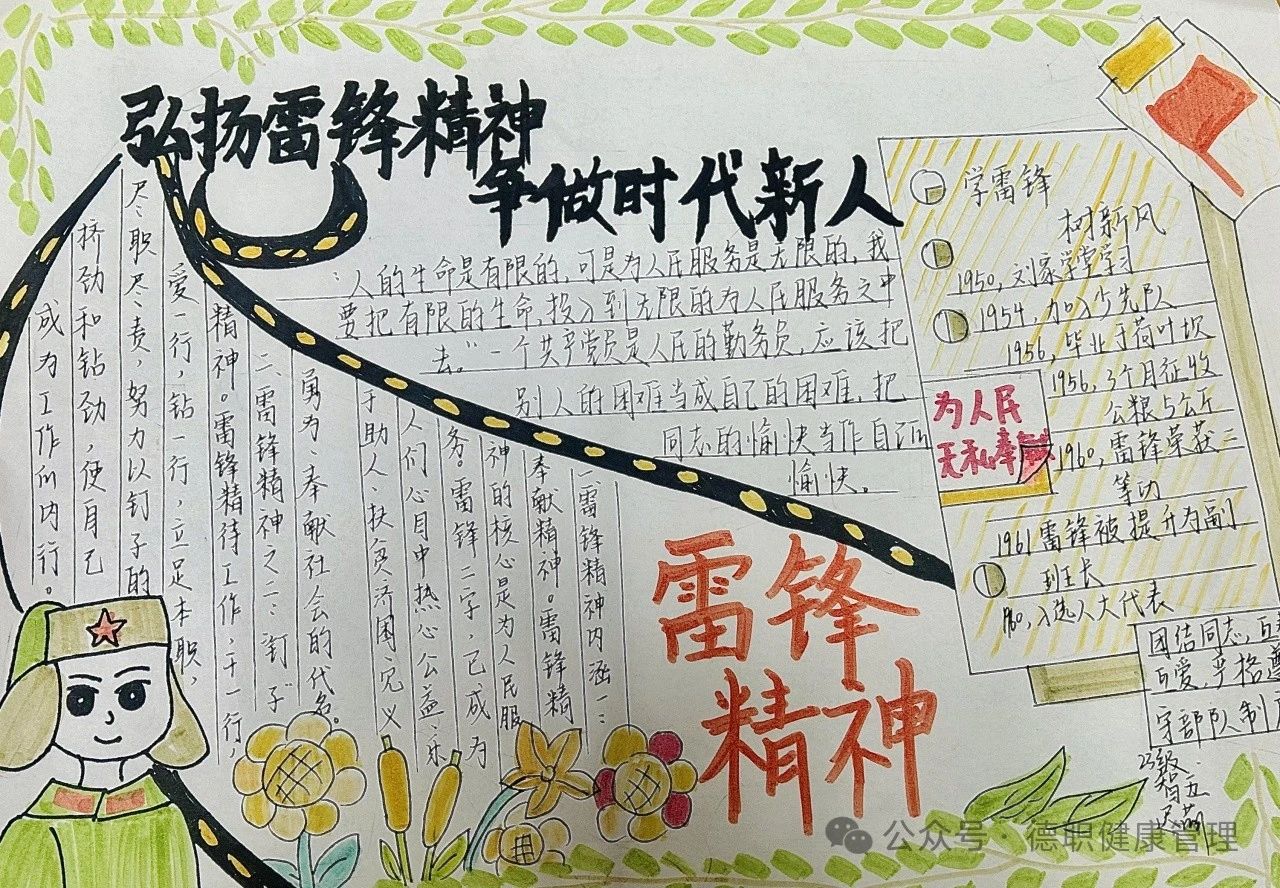 弘扬雷锋精神
争做时代新人
：人的生命是有限的,可是为人民服务是无限的,我
要把有限的生命,投入到无限的为人民服务之中
去。”一个共产党员是人民的勤务员,应该把
别人的困难当成自己的困难,把
同志的愉快当作自己的
愉快。
一雷锋精神内涵一：
奉献精神。雷锋精
神的核心是为人民服
务。雷锋二字,已成为
人们心目中热心公益、乐
于助人、扶贫济困见义
勇为、奉献社会的代名。
二、雷锋精神之二：钉子
精神。雷锋精待工作,二十一行,
爱一行,钻一行,立足本职,
尽职尽责,努力以钉子的
挤劲和钻劲,使自己
成为工作的内行。
雷锋
精神
学雷锋
树新风
1950,刘家学堂学习
1954,加入少先队
1956,毕业于荷叶坎
1956,3个月征收
公粮5公斤
1960,雷锋荣获二
等功
1961雷锋被提升为副
班长
入选人大代表
为人民
无私奉献
团结同志,互
互爱,严格遵
守部队制
23级
智五
公众号·德职健康管理